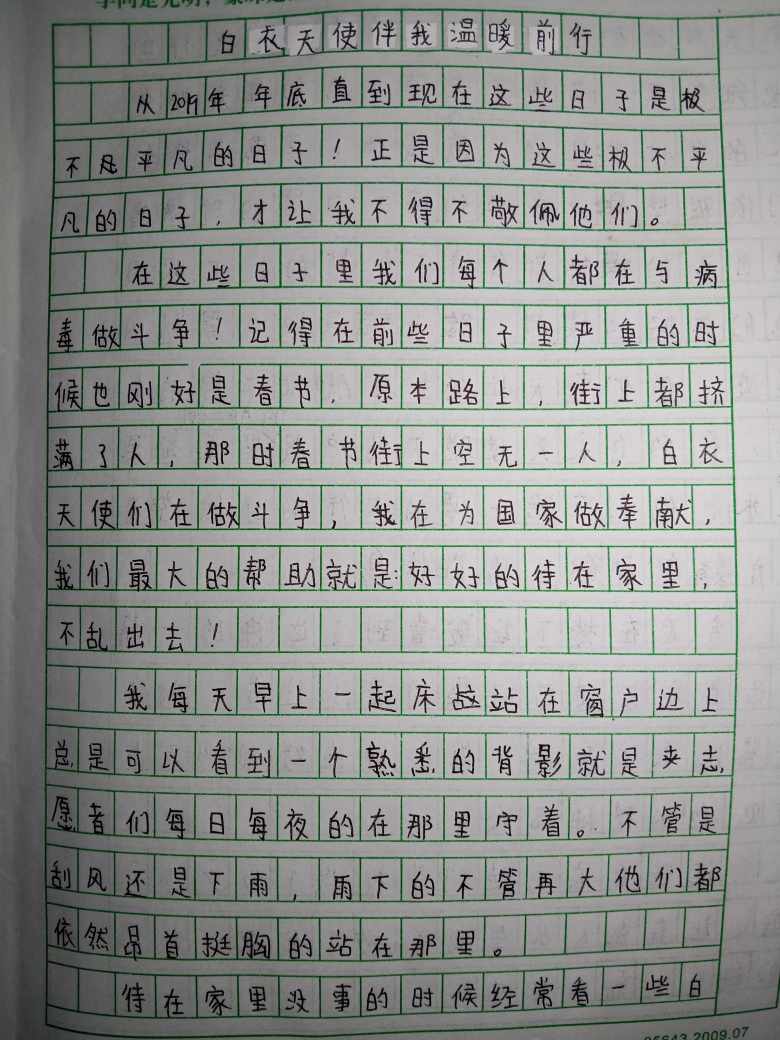 白衣天使伴我温暖前行
从2019年年底直到现在这些日子是极
不凡平凡的日子！正是因为这些极不平
凡的日子，才让我不得不敬佩他们。
在这些日子里我们每个人都在与病
毒做斗争！记得在前些日子里严重的时
候也刚好是春节．原本路上，街上都挤
满了人，那时春节街上空无一人，白衣
天使们在做斗争，我在为国家做奉献，
我们最大的帮助就是：好好的待在家里，
不乱出去！
我每天早上一起床站在窗户边上
总是可以看到一个熟悉的背影就是志
愿者们每日每夜的在那里守着。不管是
刮风还是下雨，雨下的不管再大他们都
依然昂首挺胸的站在那里。
待在家里没事的时候经常看一些白
05643 2009.07